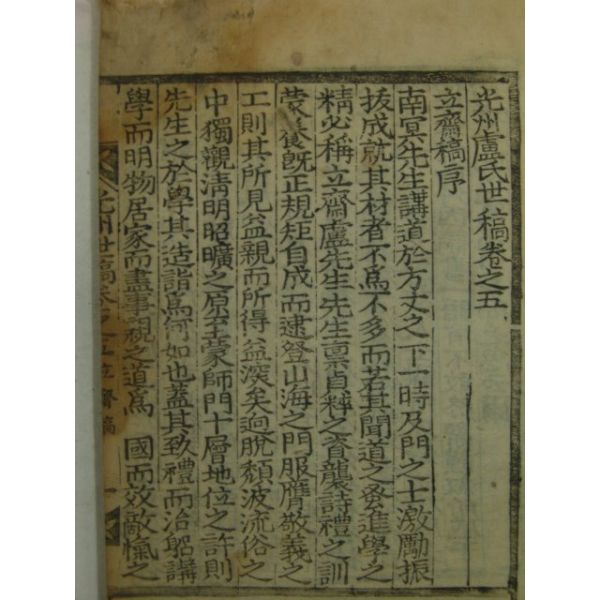 光州盧氏世稿卷之五
立齋稿序
南冥先生講道於方丈之下一時及門之士激勵振
拔成就其材者不爲不多而若其聞道之蚤進學之
精必稱立齋盧先生先生禀貞粹之資襲詩禮之訓
蒙養旣正規矩自成而逮登山海之門服膺敬義之
工則其所見益親而所得益深矣逈脫頹波流俗之
中獨觀淸明昭曠之原至蒙師門十層地位之許則
先生之於學其造詣爲何如也蓋其致禮而治躬講
學而明物居家而盡事親之道爲 國而效敵愾之
光州世稿卷之五 立齋稿 一